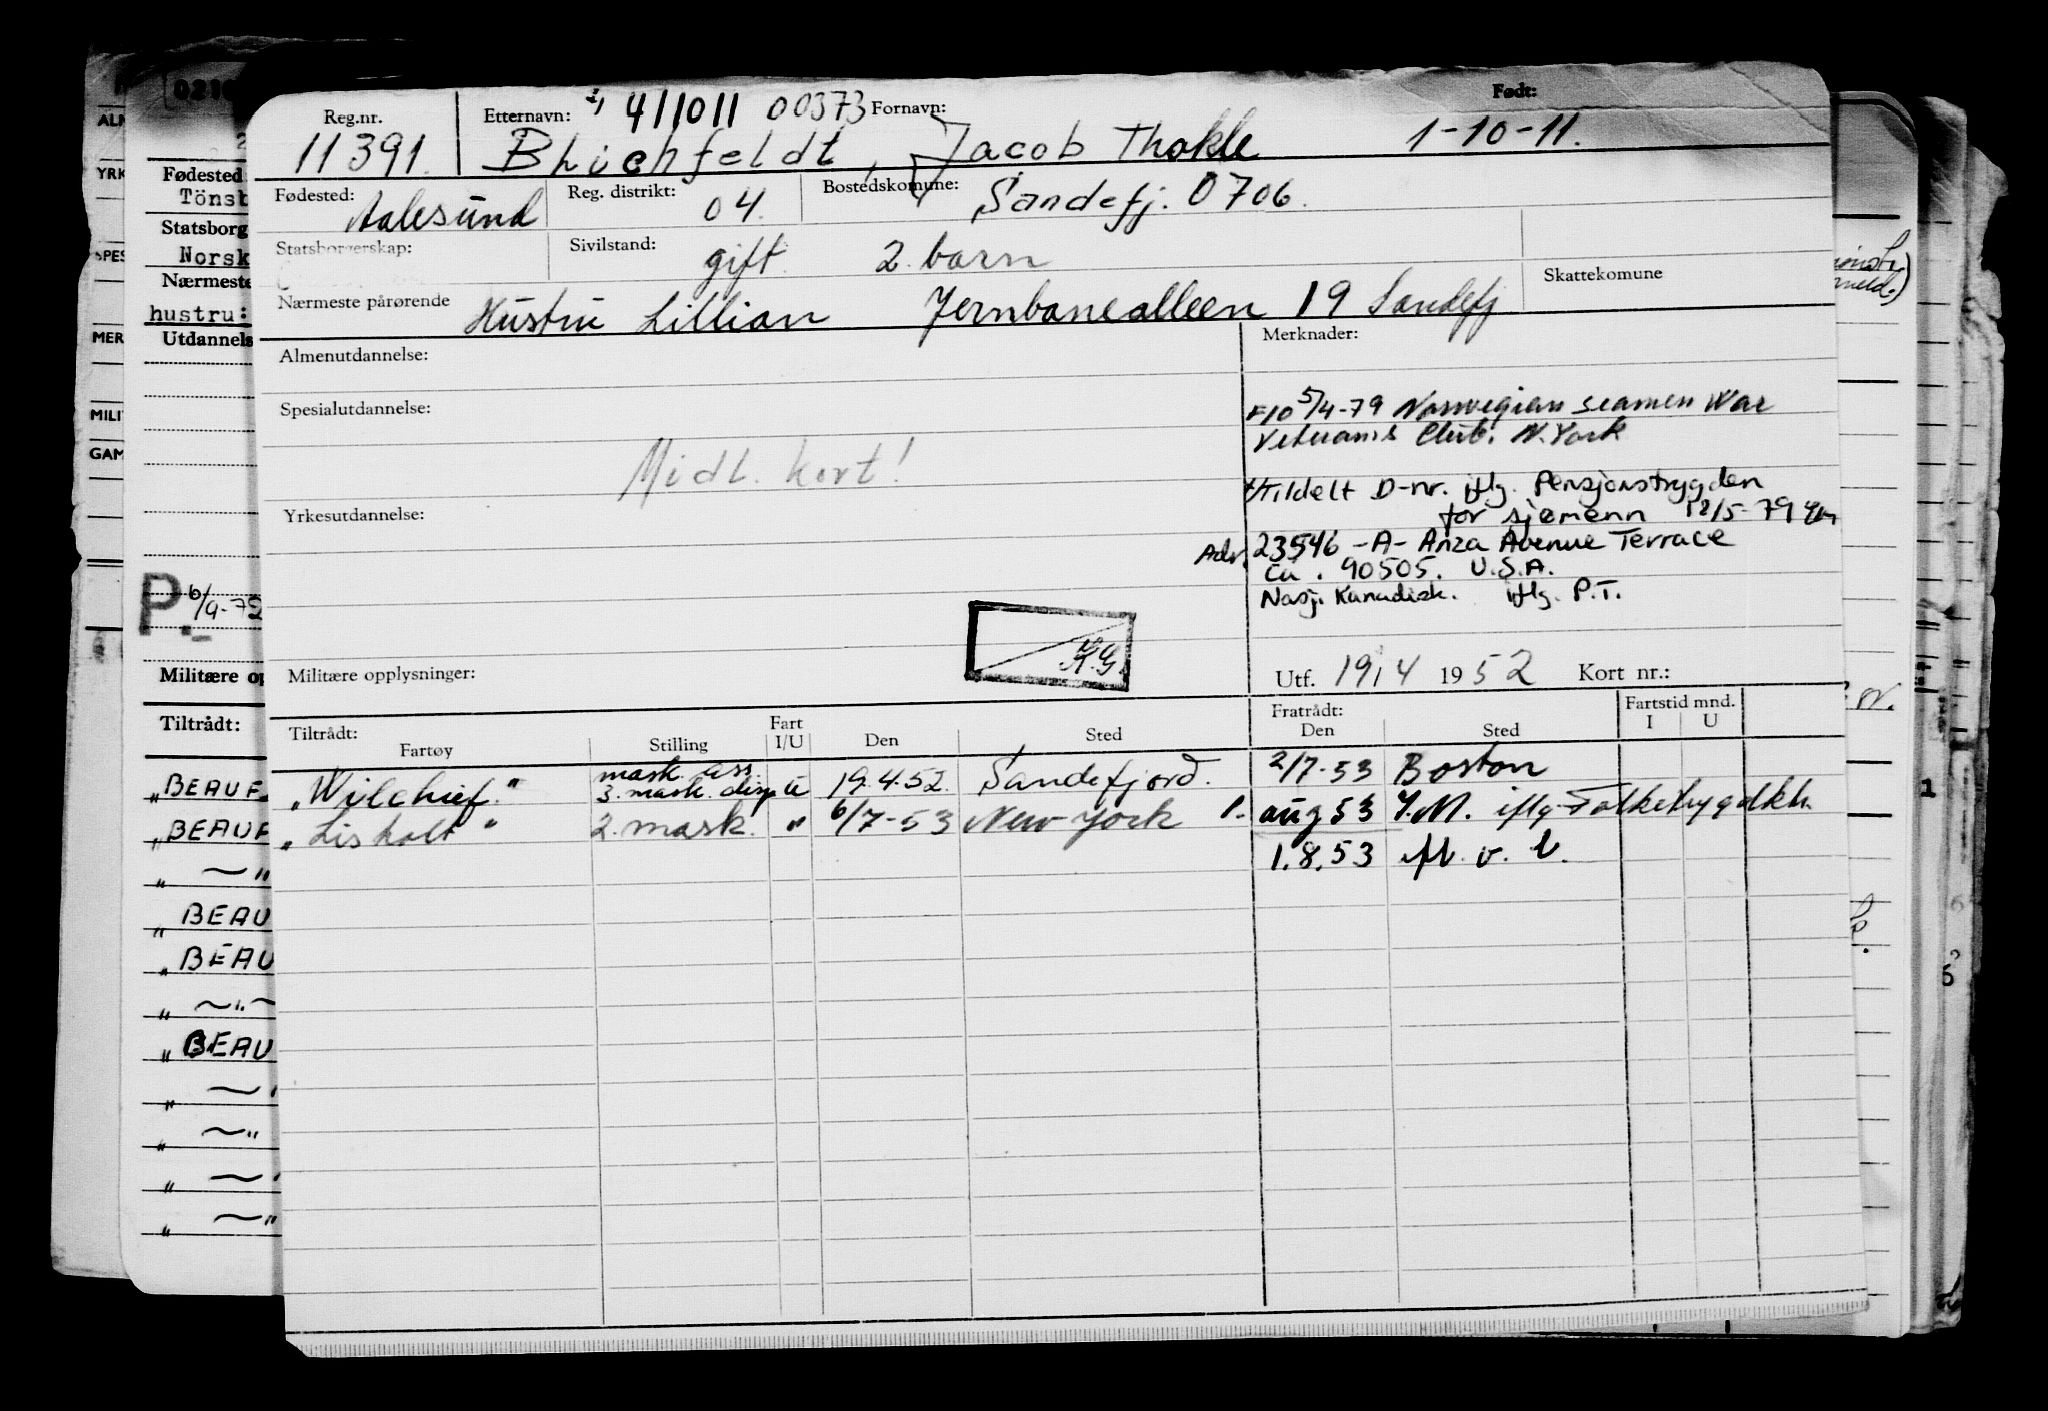 Reg.nr. Etternavn: 411011 00373 Fornavn: Født:
11391. Blichfeldt, Jacob Thokle 1-10-11.
Fødested: Reg. distrikt: Bostedskomune:
Aalesund 04. Sandefj. 0706.
Statsborgerskap: Sivilstand:
gift 2 barn
Nærmeste pårørende Skattekomune
Hustru Lillian Jernbanealleen 19 Sandefj
Almenutdannelse: Merknader:
F10 5/4-79 Norwegian seamen War
Spesialutdannelse:
Veterans Club. N. York
Midl. kort!
Tildelt D-nr. iflg. Pensjonstrygden
for sjømenn 18/5-79
Yrkesutdannelse:
Adr. 23546 -A- Anza Avenue Terrace
Ca. 90505. U.S.A.
Nasj. Kanadisk. iflg. P.T.
K.G.
Militære opplysninger: Utf. 19/4 1952 Kort nr.:
Tiltrådt: Fratrådt: Fartstid mnd.
Fartøy Stilling Fart I/U Den Sted Den Sted I U
"Wilchief." mask. ass. 3. mask. disp u 19.4.52. Sandefjord. 2/7-53 Boston
"Lisholt" 2. mask. " 6/7-53 New York P. aug 53 Y.M. iflg Folketrygdkt.
1.8.53 ifl. v. l.
0210
Fødested
Tönsb
Statsborg
Norsk
Nærmeste
hustru:
Utdannels
P. 6/9-72
Militære op
Tiltrådt:
"BEAUF
"BEAUF
" —"
"BEAU
"BEAU
" —"—
"BEAU
" —
" —"
" —
" —"
ALM
YRK
SPES
MER
MILI
GAM
1
5